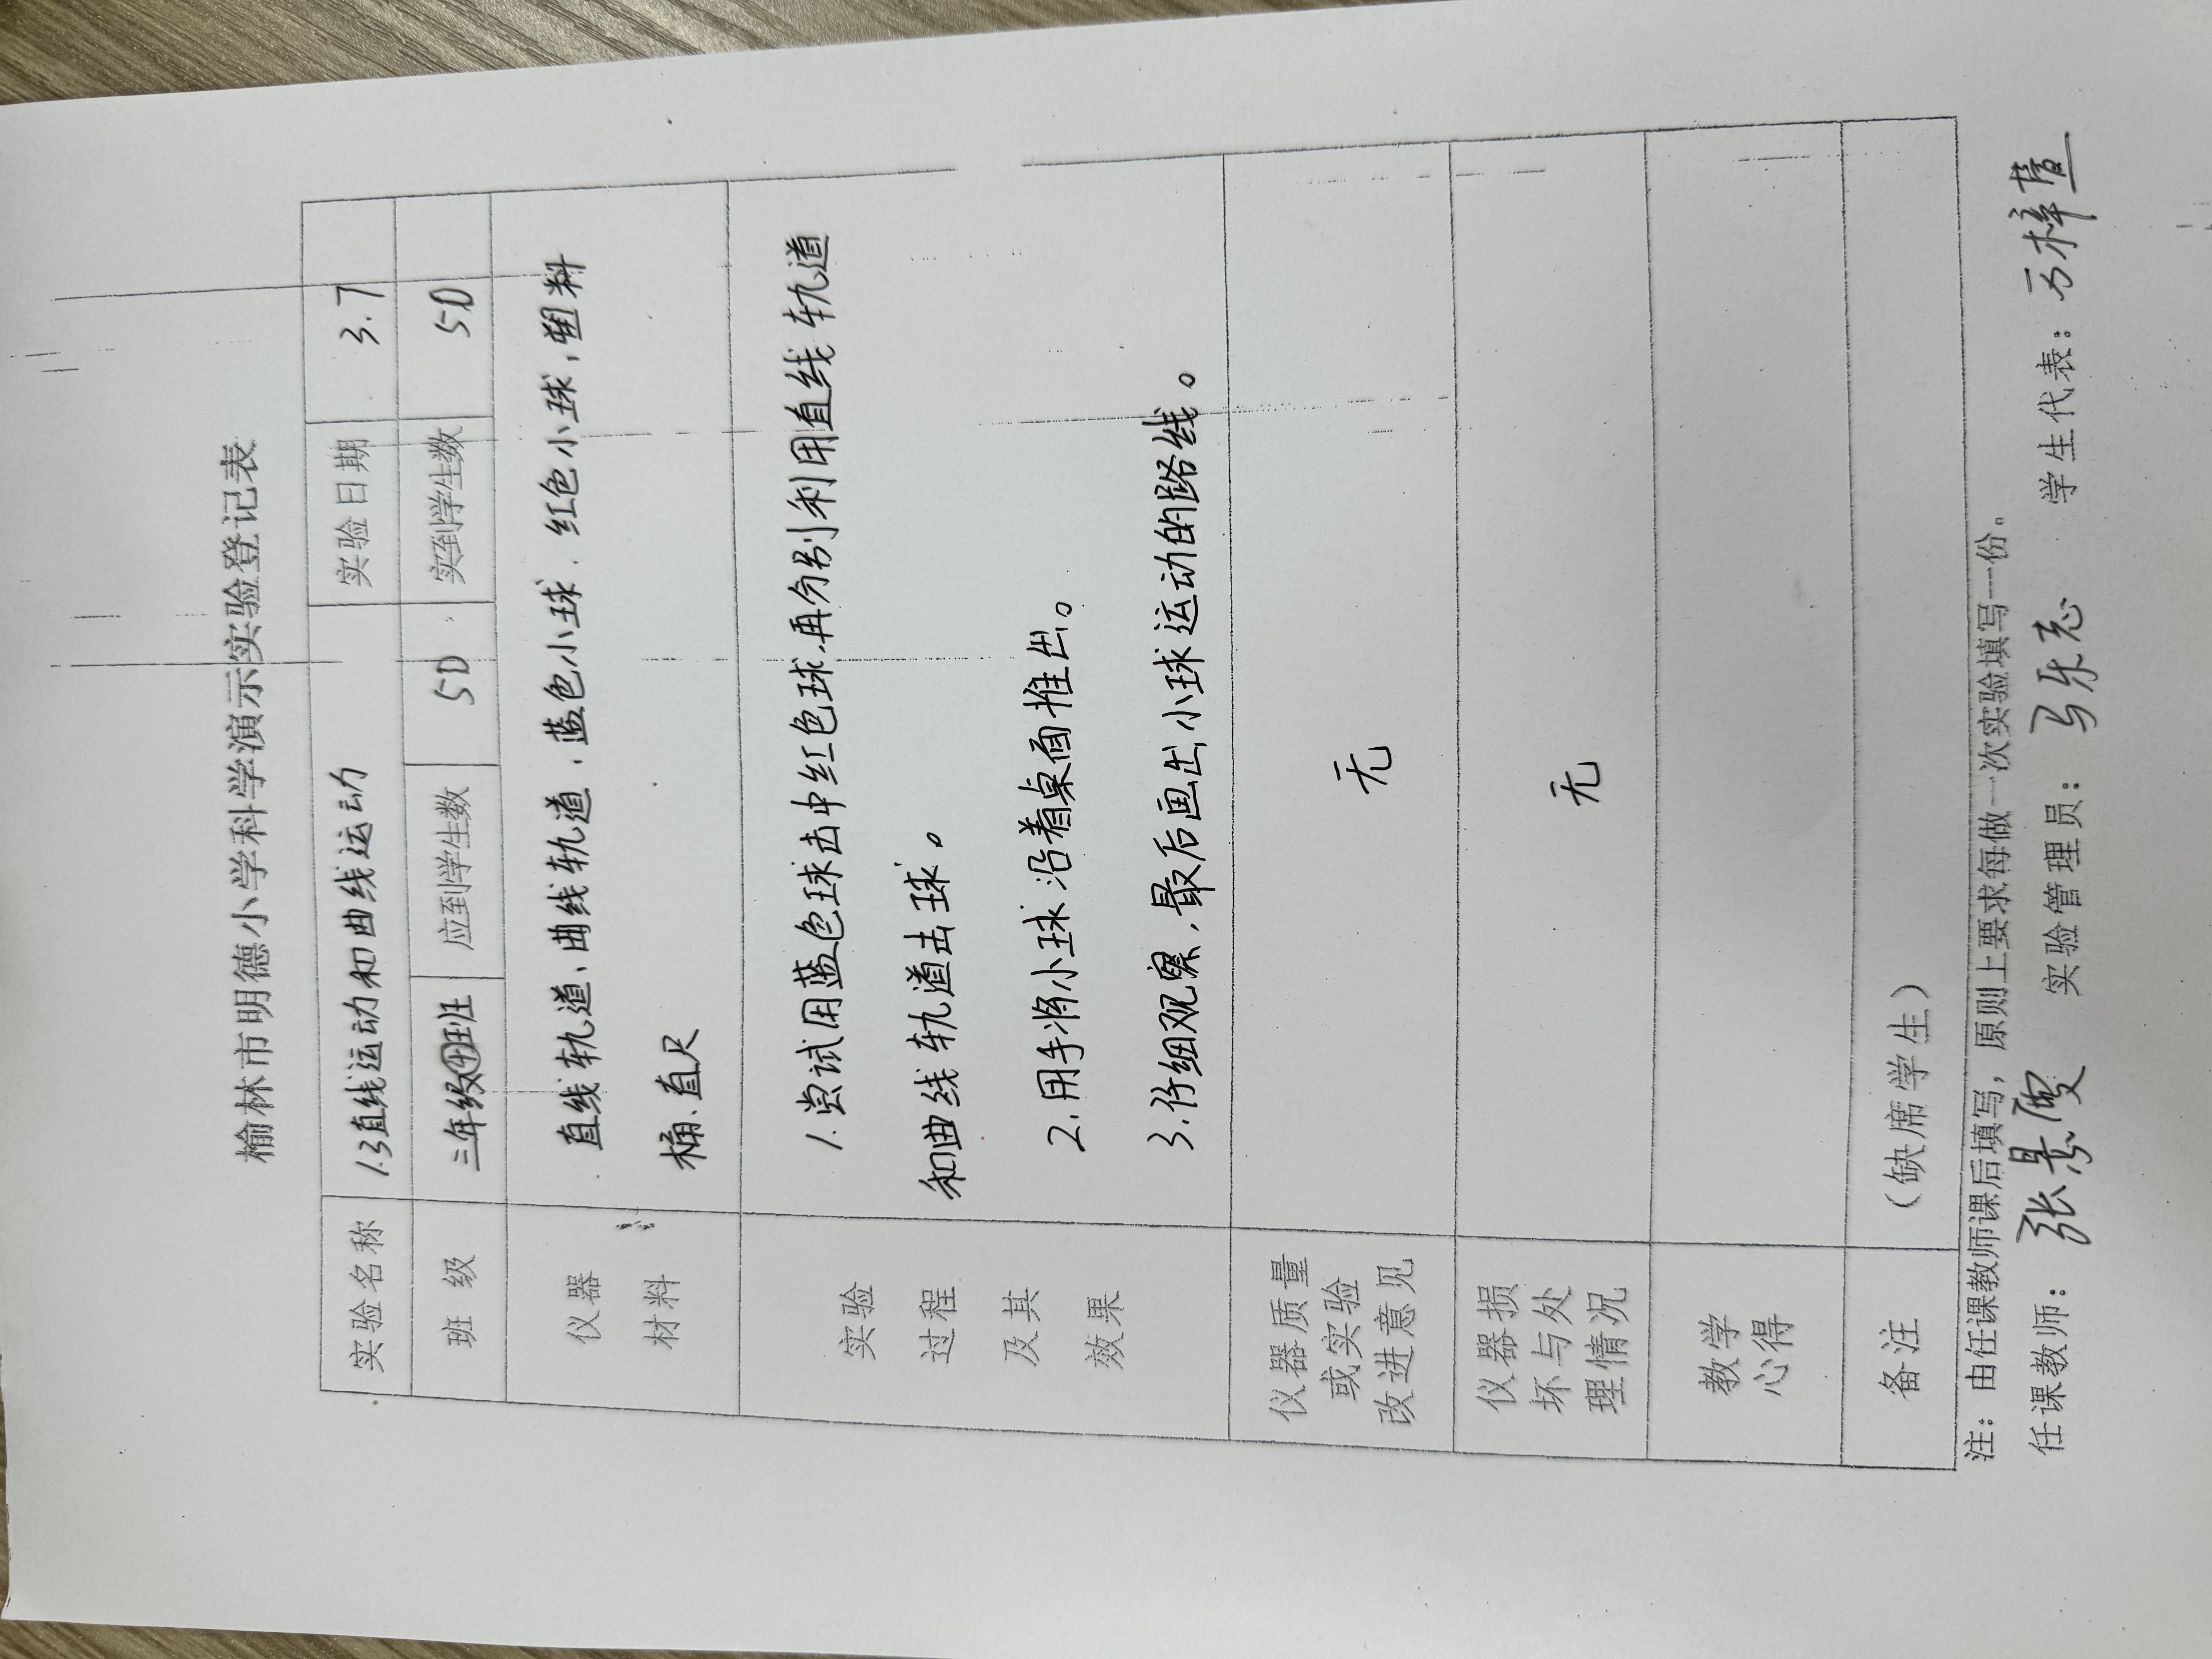 榆林市明德小学科学演示实验登记表
实验名称 1.3直线运动和曲线运动 实验日期 3.7
班 级 三年级④班 应到学生数 50 实到学生数 50
仪器 直线轨道、曲线轨道、蓝色小球、红色小球、塑料
材料 桶、直尺
实验 1.尝试用蓝色球击中红色球,再分别利用直线轨道
过程 和曲线轨道击球。
及其 2.用手将小球沿着桌面推出。
效果 3.仔细观察,最后画出小球运动的路线。
仪器质量
或实验 无
改进意见
仪器损
坏与处 无
理情况
教学
心得
备注 (缺席学生)
注:由任课教师课后填写,原则上要求每做一次实验填写一份。
任课教师:张景 实验管理员:马乐志 学生代表:梓萱